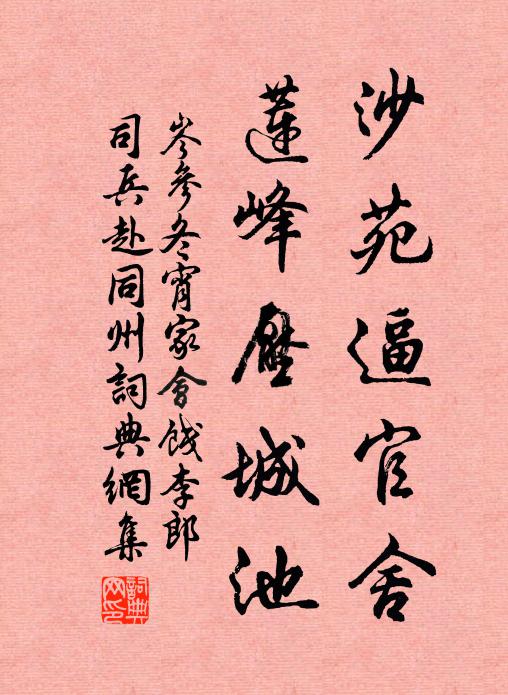 沙苑逼官舍
蓮峰壓城池
岑參冬宵家會餞李郎
司兵赴同州詞典網集
詞典
网印